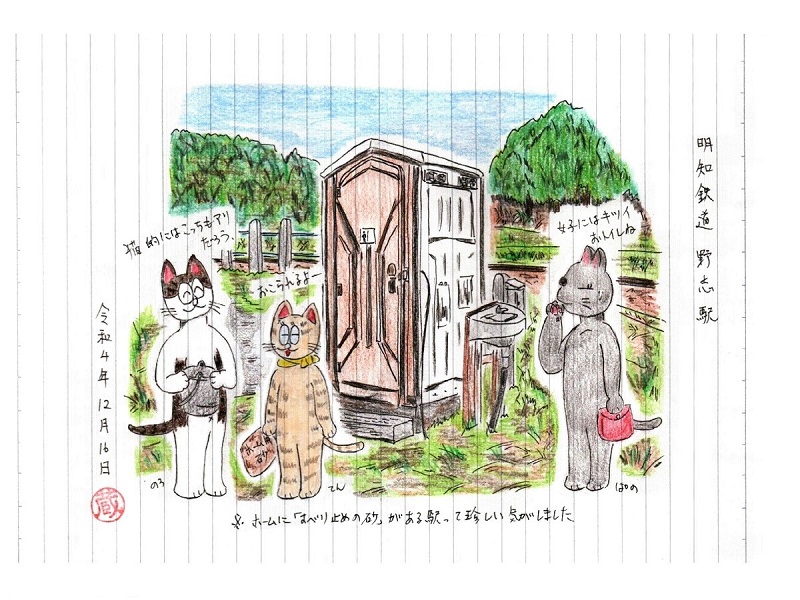 明知鉄道 野志駅
女子にはキツイ
おトイレね
猫的にはこっちもアリ
だろう。
おこられるよー
すべり止め
砂
のろ
てん
ぱの
令和4年12月16日
蔵
※ ホームに「すべり止めの砂」がある駅って珍しい気がしました